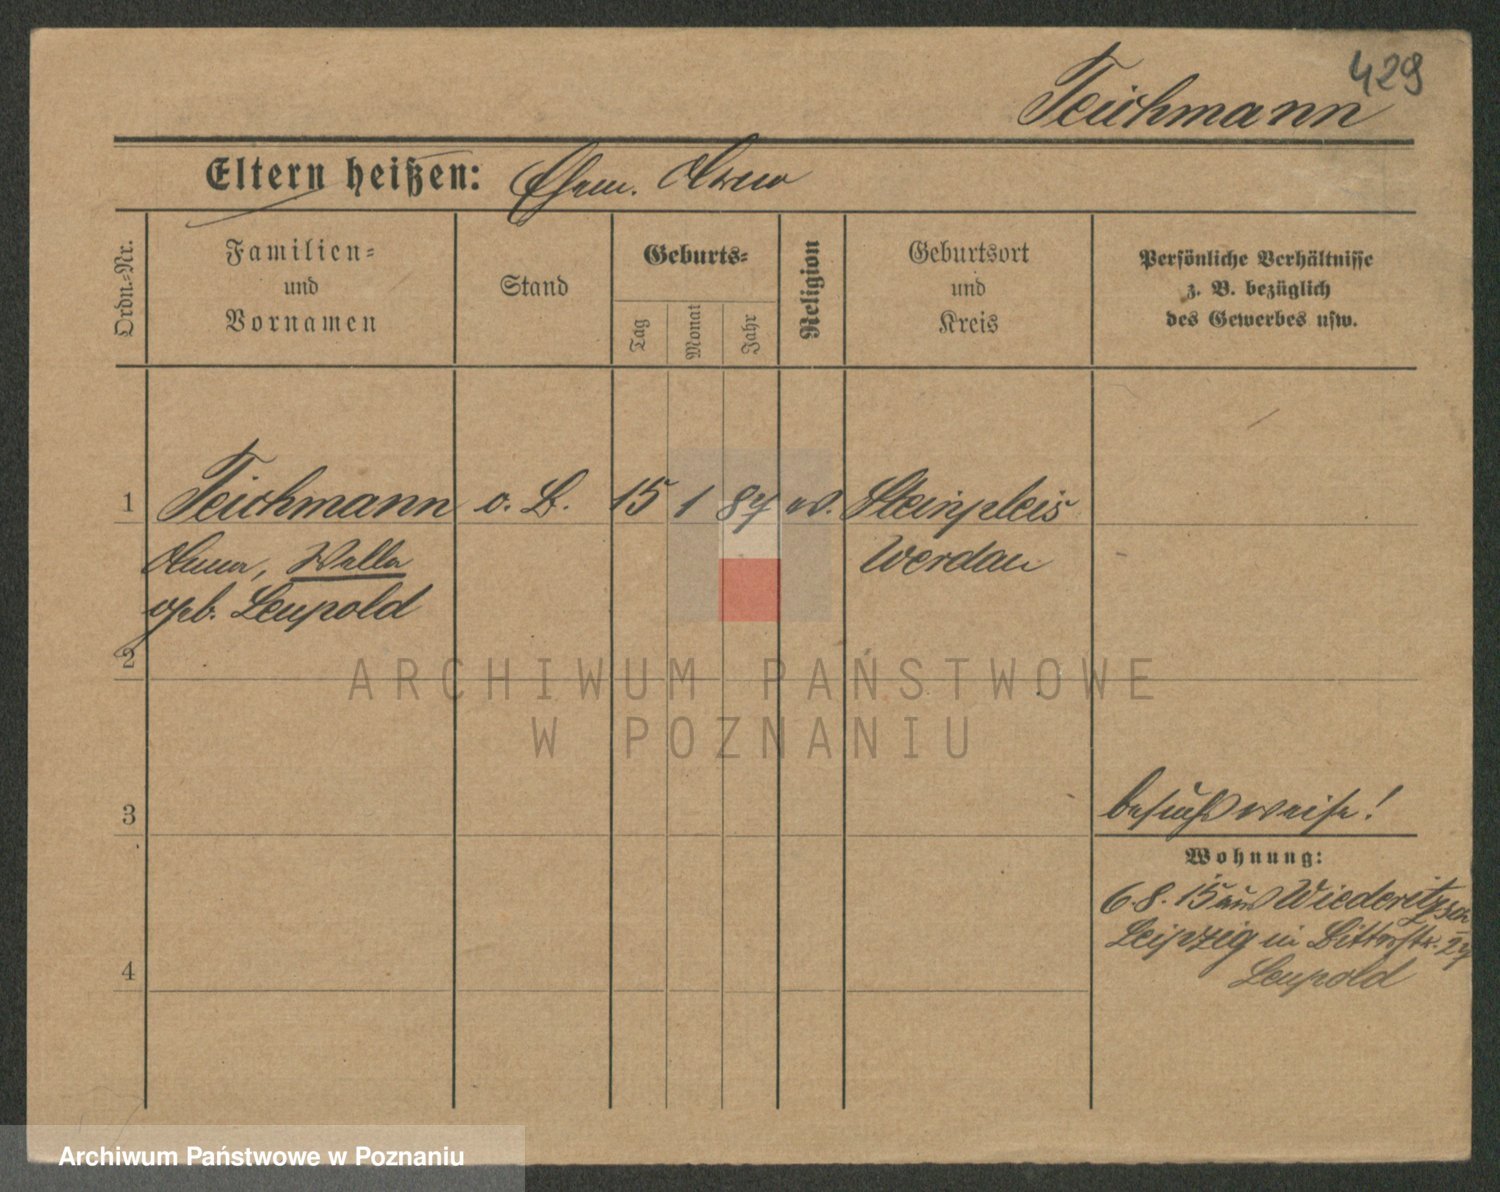 429
Teichmann
Eltern heißen: Ehem.
Ordn.-Nr.
Familien-
und
Vornamen
Stand
Geburts-
Tag
Monat
Jahr
Religion
Geburtsort
und
Kreis
Persönliche Verhältnisse
z. B. bezüglich
des Gewerbes usw.
1 Teichmann o. B. 15 1 87 ev. Steinpleis
Anna, Wella Werdau
geb. Leupold
2
ARCHIWUM PAŃSTWOWE
W POZNANIU
besuchsweise!
3
Wohnung:
6.8.15 aus Wiederitzsch
Leipzig in Bitterstr. 27
Leupold
4
Archiwum Państwowe w Poznaniu